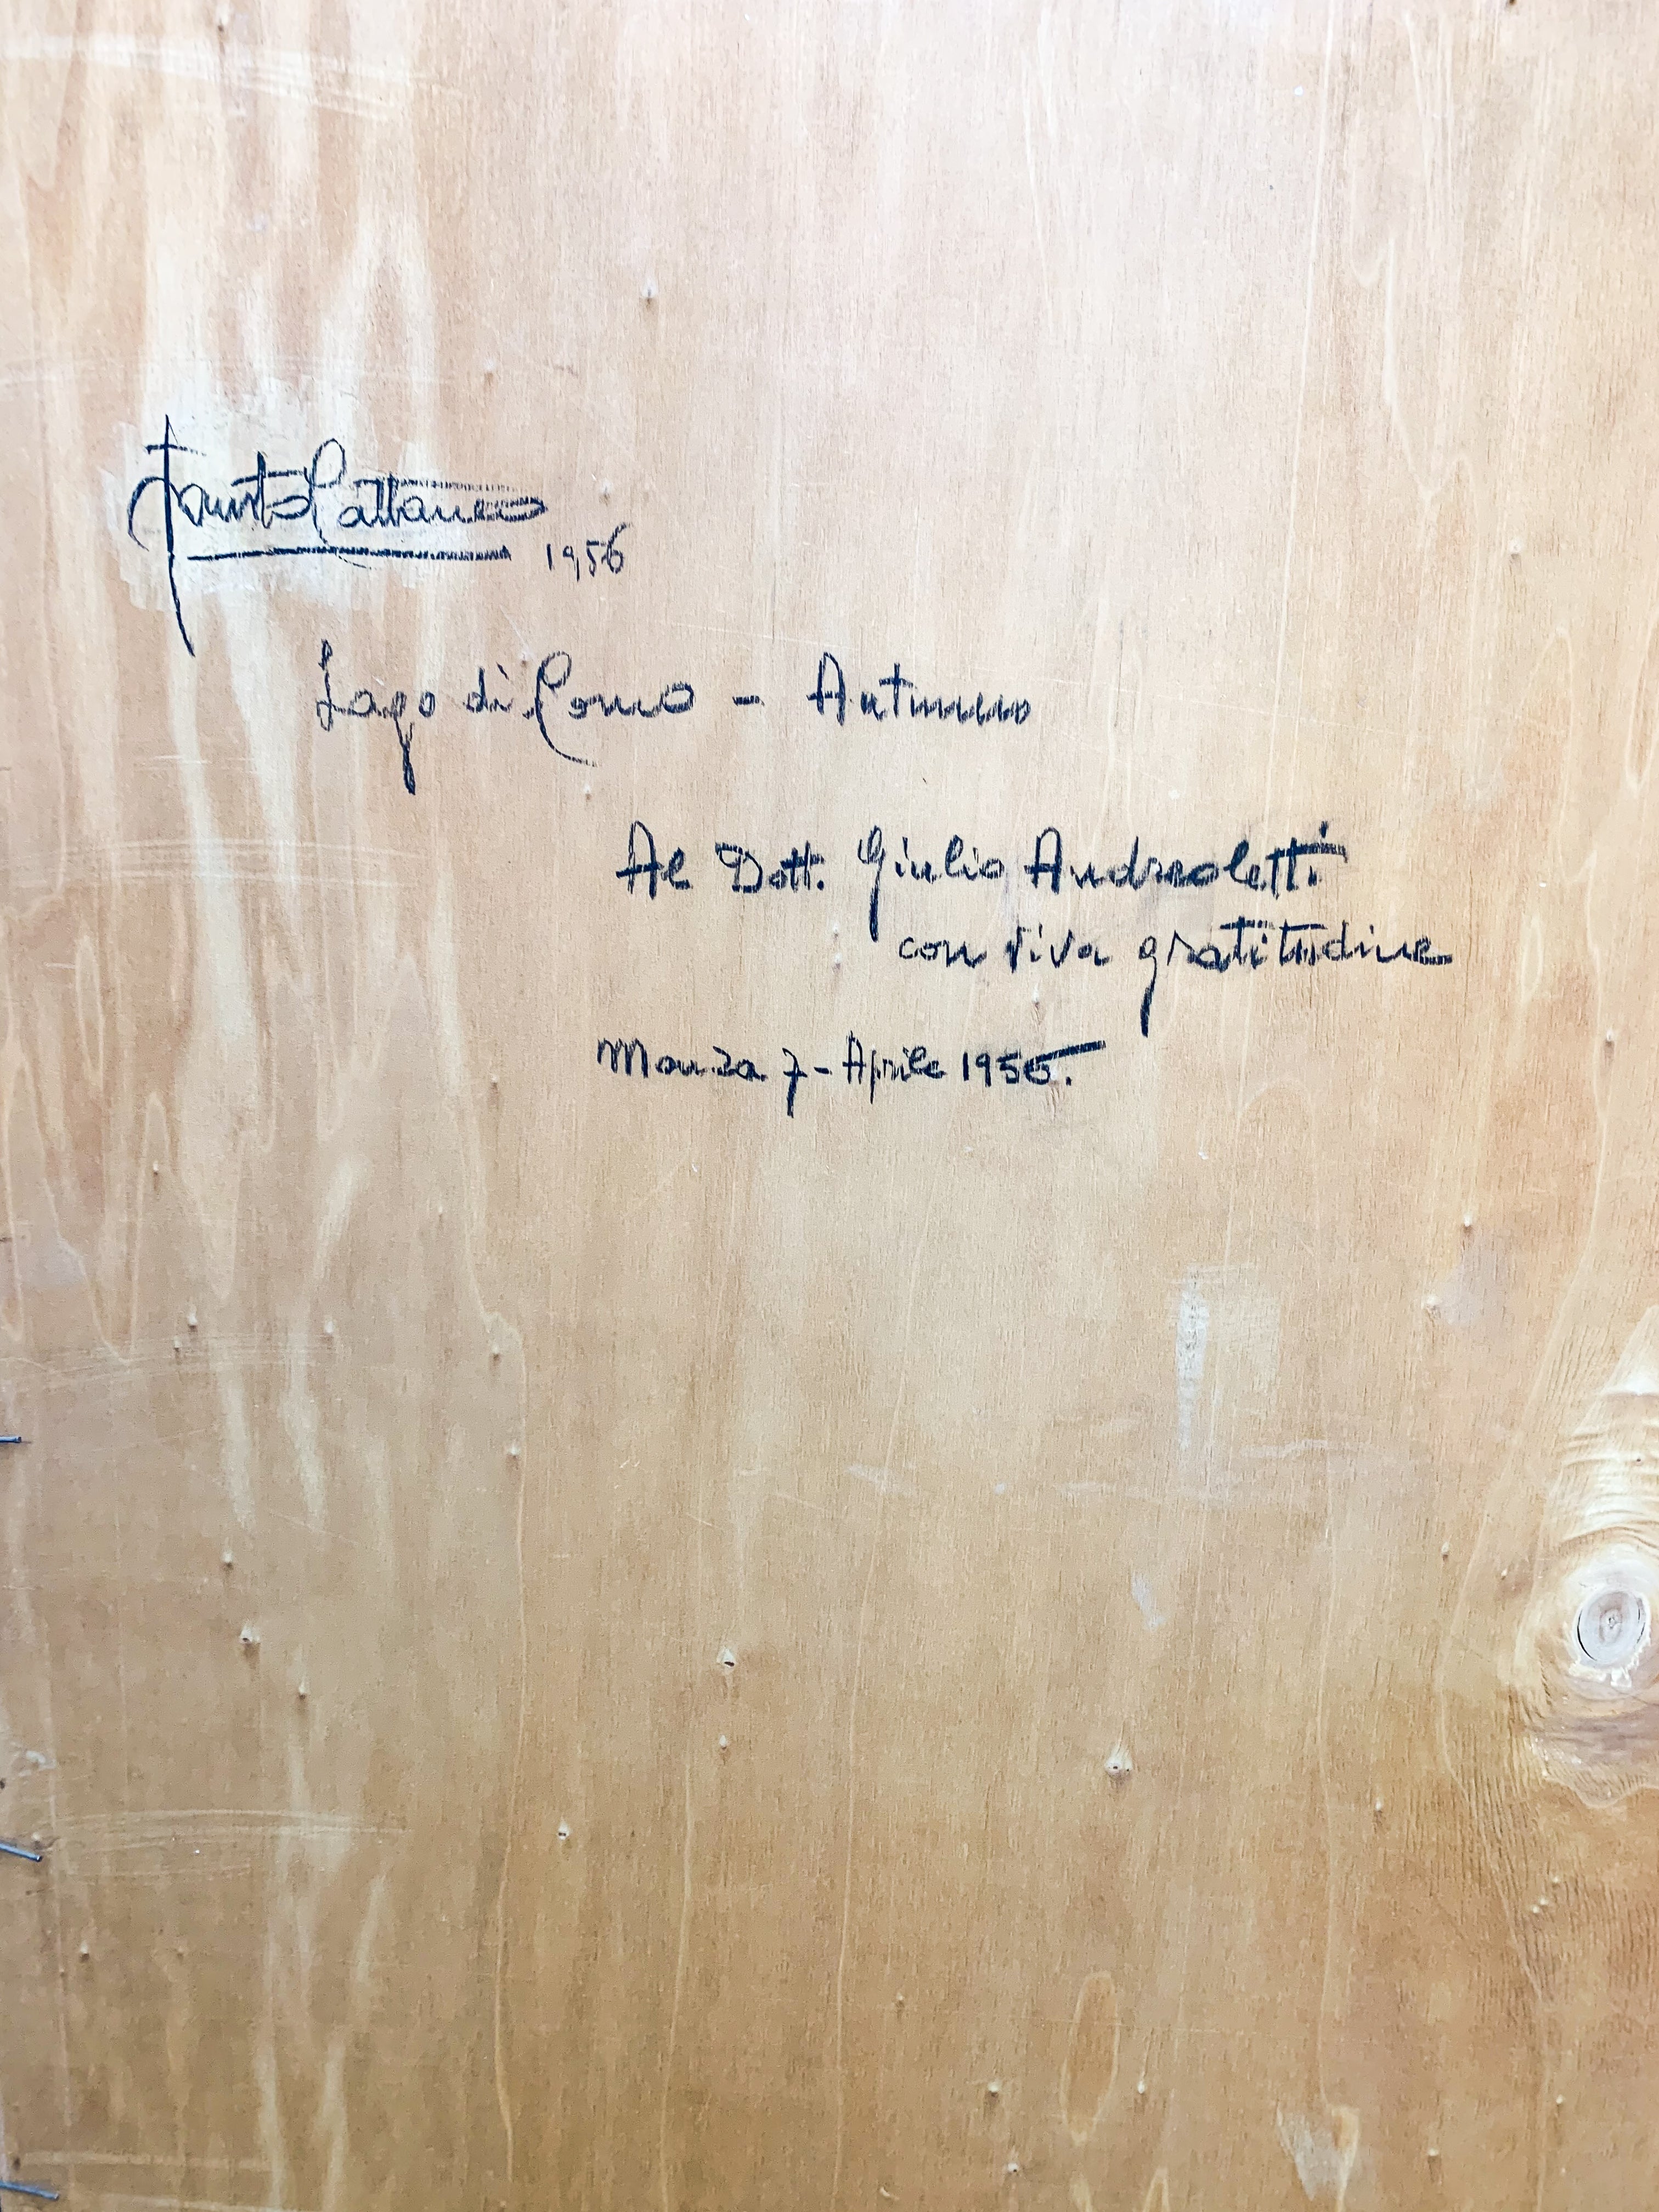 Fausto Cattaneo
1956
Lago di Como - Autunno
Al Dott. Giulio Andreoletti
con viva gratitudine
Monza 7 - Aprile 1956.